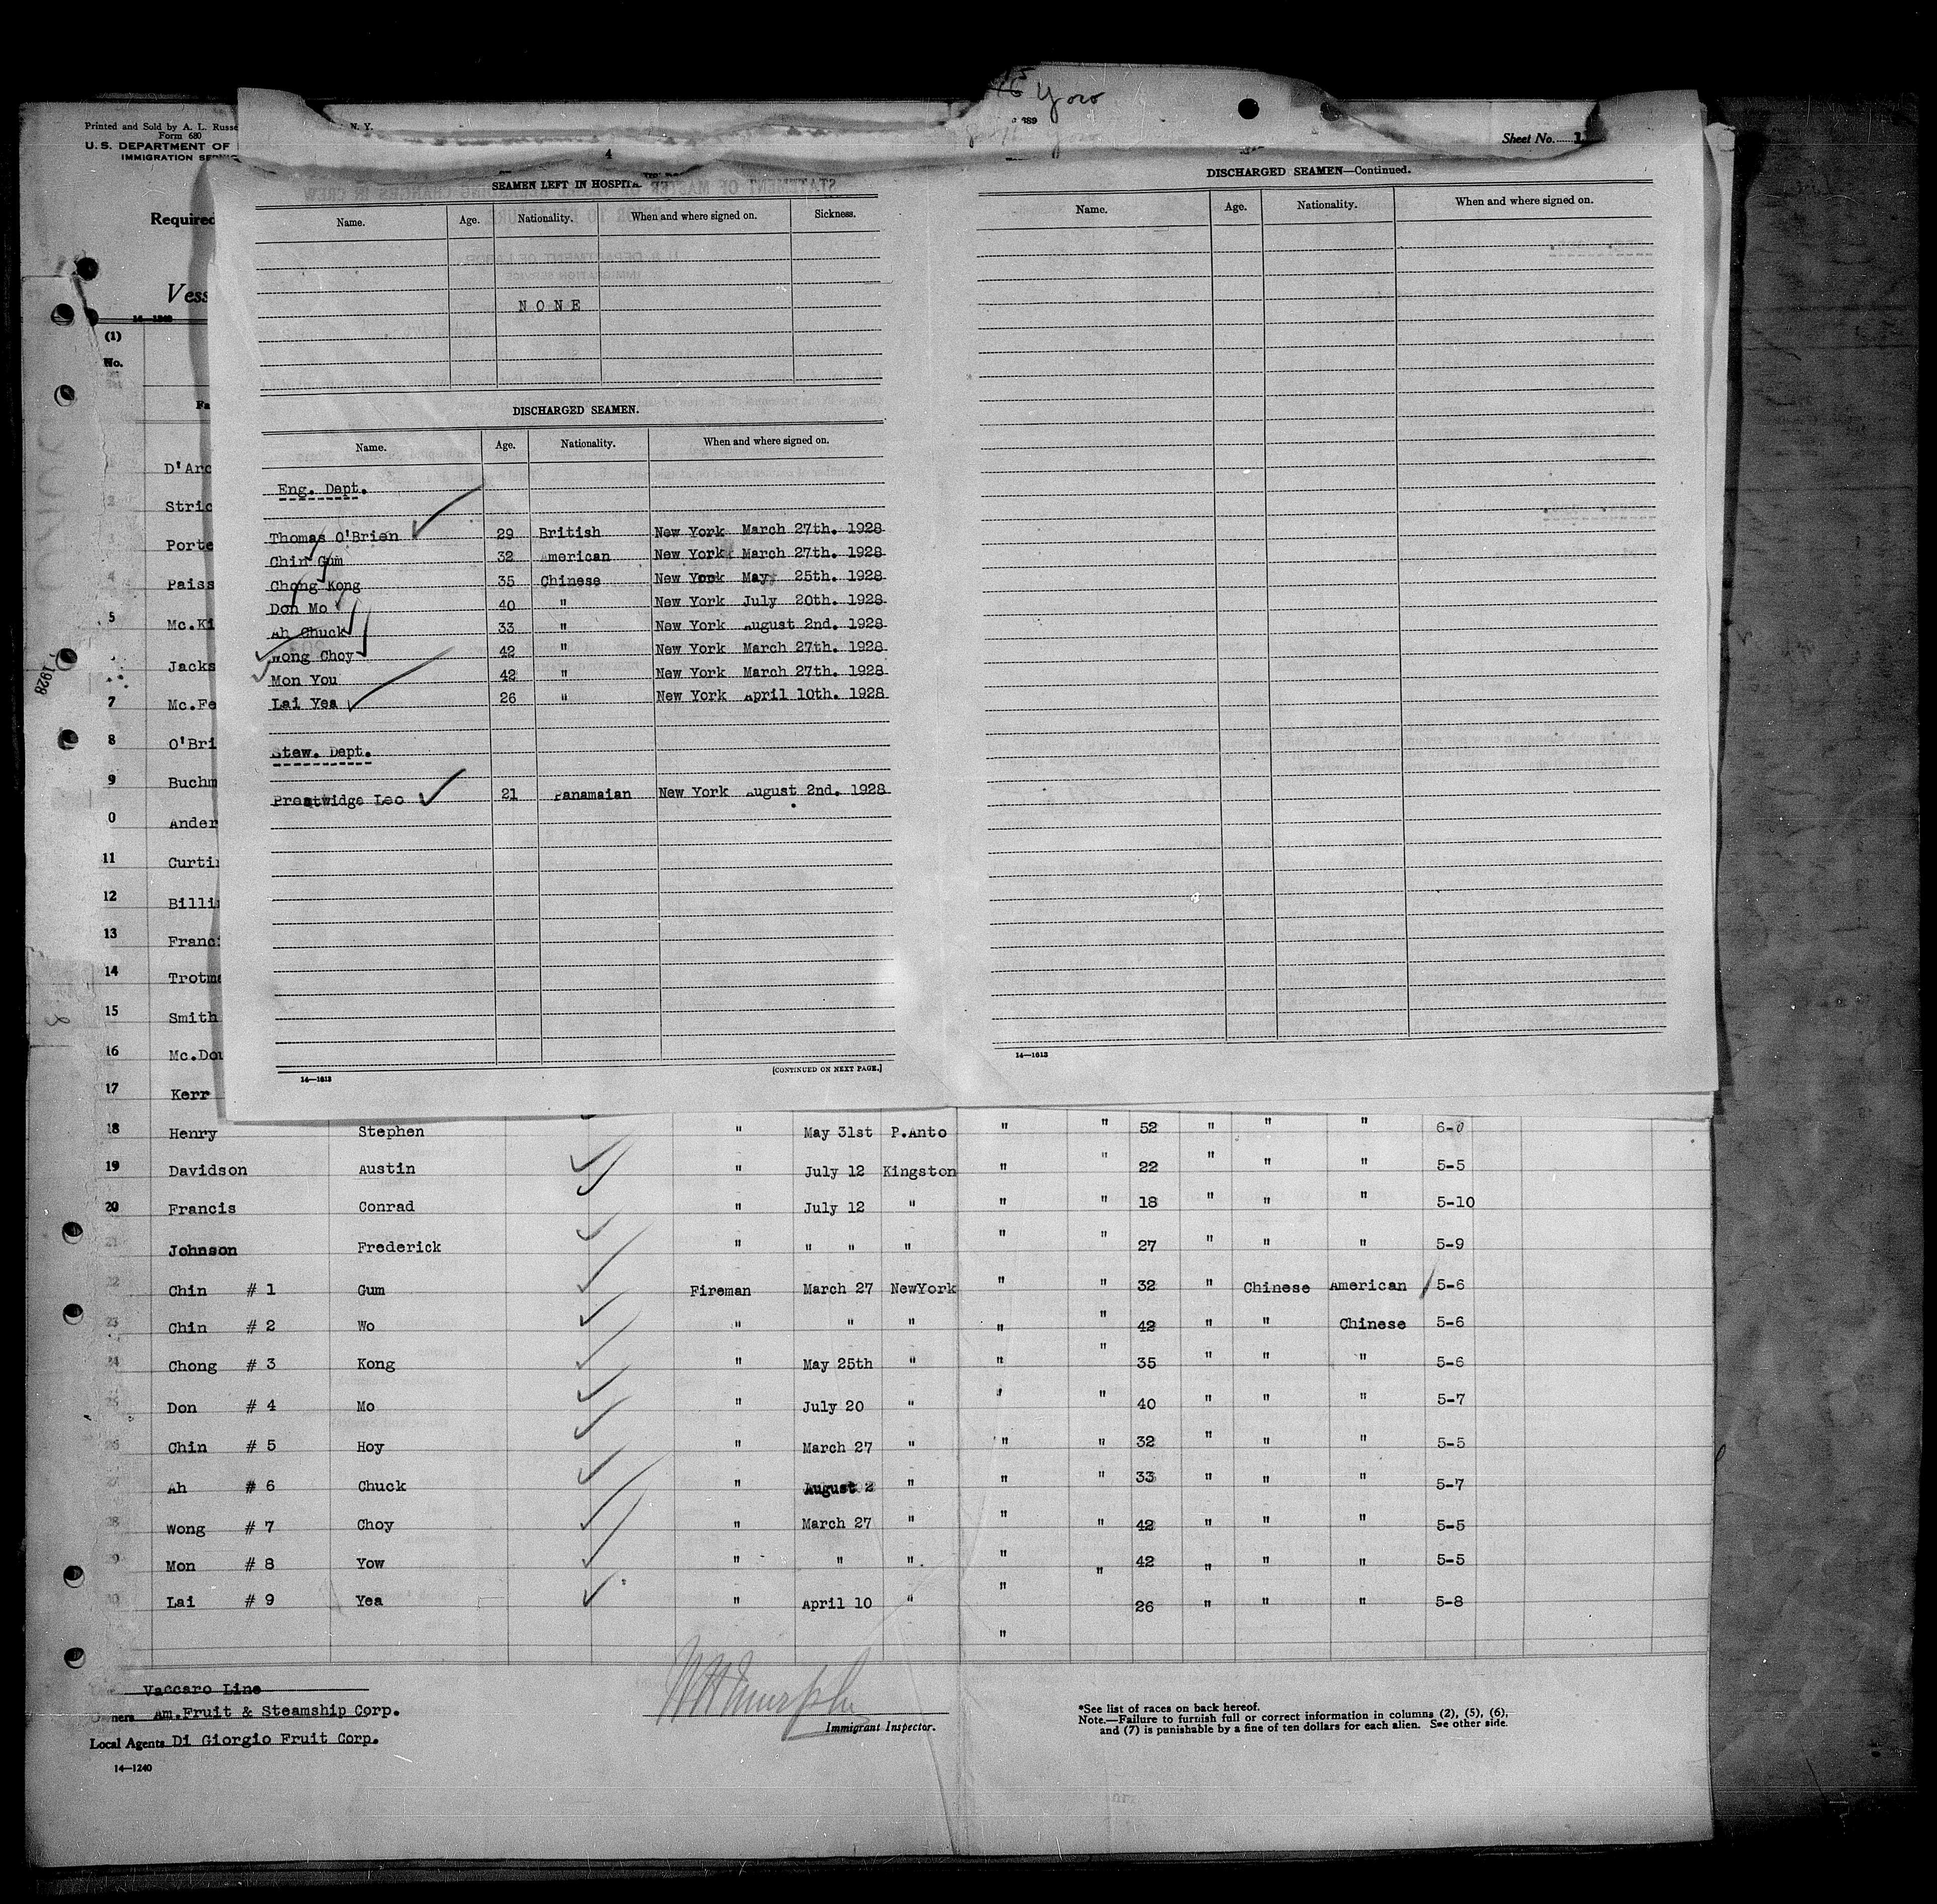 Yoro
Printed and Sold by A. L. Russe
N. Y.
Form 680
U. S. DEPARTMENT OF
IMMIGRATION
Sheet No.
Required
Vess
(1)
No.
4
SEAMEN LEFT IN HOSPITA
Name. Age. Nationality. When and where signed on. Sickness.
NONE
DISCHARGED SEAMEN.
Name. Age. Nationality. When and where signed on.
Eng. Dept.
Thomas O'Brien 29 British New York March 27th. 1928
Chin Gum 32 American New York March 27th. 1928
Chong Kong 35 Chinese New York May 25th. 1928
Don Mo 40 " New York July 20th. 1928
Ah Chuck 33 " New York August 2nd. 1928
Wong Choy 42 " New York March 27th. 1928
Mon You 42 " New York March 27th. 1928
Lai Yea 26 " New York April 10th. 1928
Stew. Dept.
Preatwidge Leo 21 Panamaian New York August 2nd. 1928
14—1613
[CONTINUED ON NEXT PAGE.]
DISCHARGED SEAMEN—Continued.
Name. Age. Nationality. When and where signed on.
14—1613
1928
D'Arc
Stric
Porte
4 Paiss
5 Mc.Ki
Jacks
7 Mc.Fe
8 O'Bri
9 Buchm
0 Ander
11 Curti
12 Billi
13 Franci
14 Trotma
15 Smith
16 Mc.Dou
17 Kerr
18 Henry Stephen " May 31st P.Anto " " 52 " " " 6-0
19 Davidson Austin " July 12 Kingston " " 22 " " " 5-5
20 Francis Conrad " July 12 " " " 18 " " " 5-10
21 Johnson Frederick " " " " " " 27 " " " 5-9
22 Chin # 1 Gum Fireman March 27 NewYork " " 32 " Chinese American 5-6
23 Chin # 2 Wo " " " " " 42 " " Chinese 5-6
24 Chong # 3 Kong " May 25th " " " 35 " " " 5-6
25 Don # 4 Mo " July 20 " " " 40 " " " 5-7
26 Chin # 5 Hoy " March 27 " " " 32 " " " 5-5
27 Ah # 6 Chuck " August 2 " " " 33 " " " 5-7
28 Wong # 7 Choy " March 27 " " " 42 " " " 5-5
29 Mon # 8 Yow " " " " " 42 " " " 5-5
30 Lai # 9 Yea " April 10 " " 26 " " " 5-8
"
Vaccaro Line
Owners Am.Fruit & Steamship Corp.
Local Agents Di Giorgio Fruit Corp.
14—1240
Immigrant Inspector.
*See list of races on back hereof.
Note.—Failure to furnish full or correct information in columns (2), (5), (6),
and (7) is punishable by a fine of ten dollars for each alien. See other side.